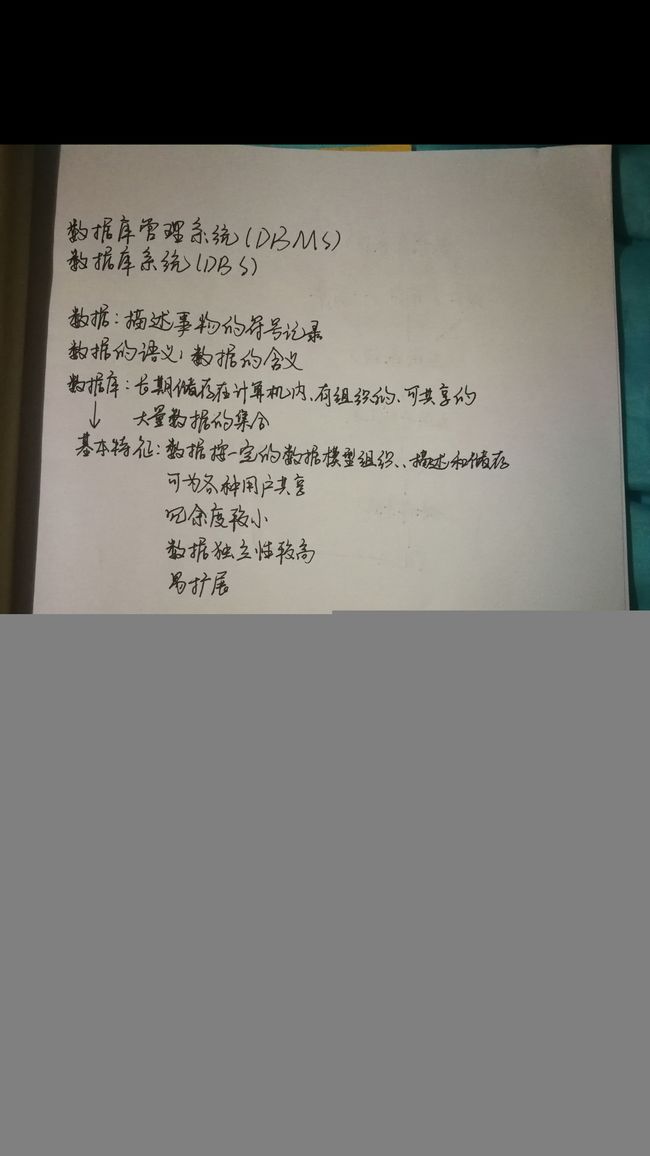 数据库管理系统(DBMS)
数据库系统(DBS)
数据:描述事物的符号记录
数据的语义:数据的含义
数据库:长期储存在计算机内、有组织的、可共享的
↓ 大量数据的集合
基本特征:数据按一定的数据模型组织、描述和储存
可为各种用户共享
冗余度较小
数据独立性较高
易扩展